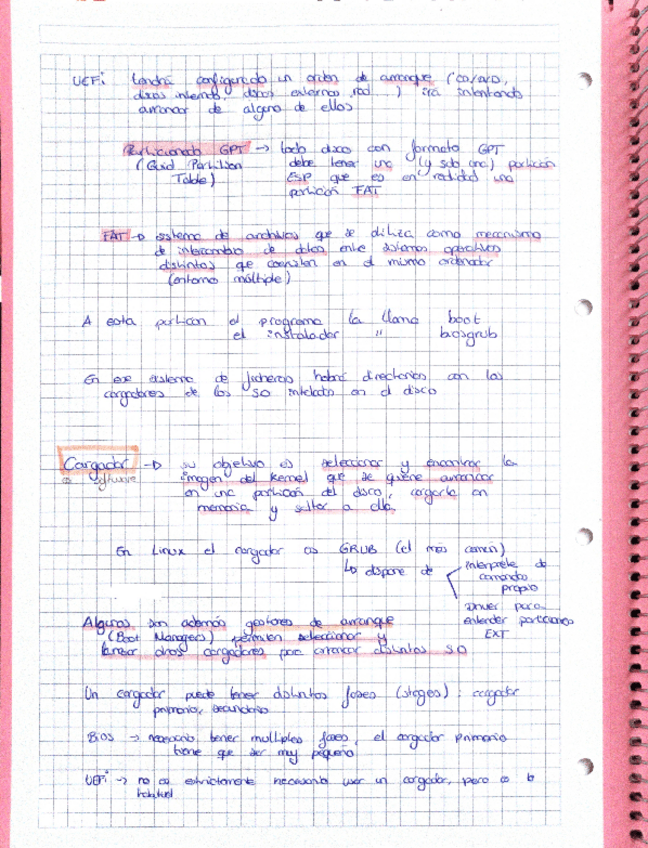 UEFI: tendrá configurado un orden de arranque (CD/DVD,
discos internos, discos externos, red...) irá intentando
arrancar de alguno de ellos
Particionado GPT → todo disco con formato GPT
(Guid Partition debe tener una (y solo una) partición
Table) ESP que es en realidad una
partición FAT
FAT → sistema de archivos que se utiliza como mecanismo
de intercambio de datos entre sistemas operativos
distintos que coexisten en el mismo ordenador
(entorno múltiple)
A esta particon el programa la llama boot
el instalador " biosgrub
En ese sistema de ficheros habrá directorios con los
cargadores de los SO instalados en el disco
Cargador → su objetivo es seleccionar y encontrar la
es software imagen del kernel que se quiere arrancar
en una partición del disco, cargarla en
memoria y saltar a ella.
En Linux el cargador es GRUB (el más común)
↳ dispone de intérprete de
comandos
propio
para
entender particiones
EXT
Algunos son además gestores de arranque
(Boot Managers) permiten seleccionar y
lanzar otros cargadores para arrancar distintos SO
Un cargador puede tener distintas fases (stages): cargador
primario, secundario
BIOS → necesario tener multiples fases, el cargador primario
tiene que ser muy pequeño
UEFI → no es estrictamente necesario usar un cargador, pero es lo
habitual